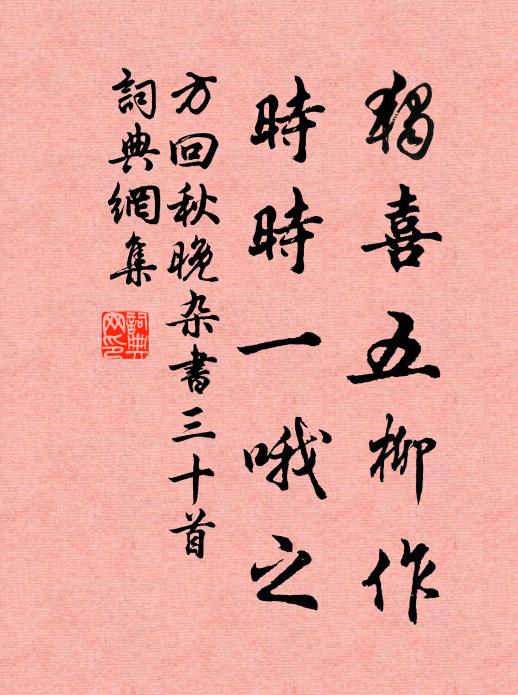 獨喜五柳作
時時一哦之
方回秋晚杂書三十首
詞典網集
詞典網印